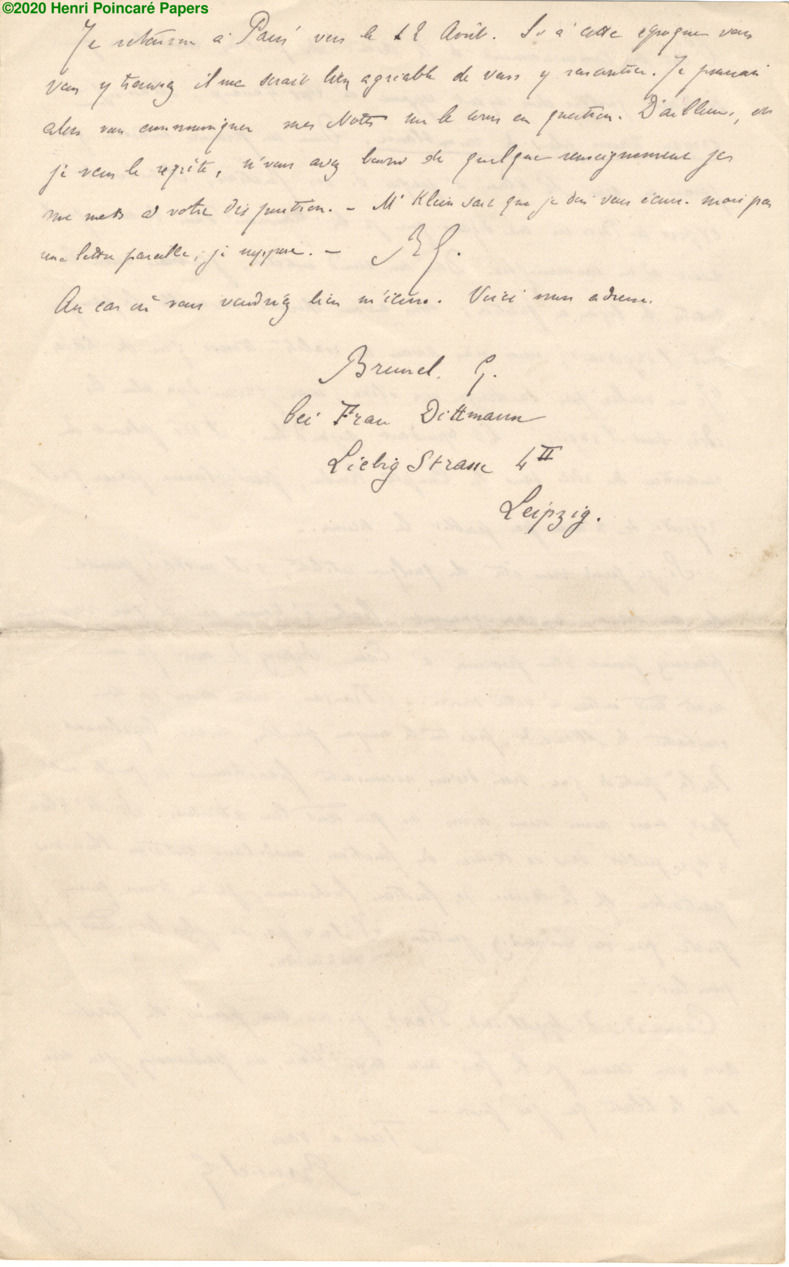 ©2020 Henri Poincaré Papers
Je retourne à Paris vers le 12 Août. Si à cette époque vous
vous y trouvez il me serait bien agréable de vous y rencontrer. Je pourrai
alors vous communiquer mes Notes sur le cours en question. D'ailleurs, et
je vous le répète, si vous avez besoin de quelque renseignement je
me mets à votre disposition. – Mr Klein sait que je dois vous écrire. mais pas
une lettre pareille, je suppose. – BG.
Au cas où vous voudriez bien m'écrire. Voici mon adresse.
Brunel. G.
bei Frau Dittmann
Liebig Strasse 4 II
Leipzig.